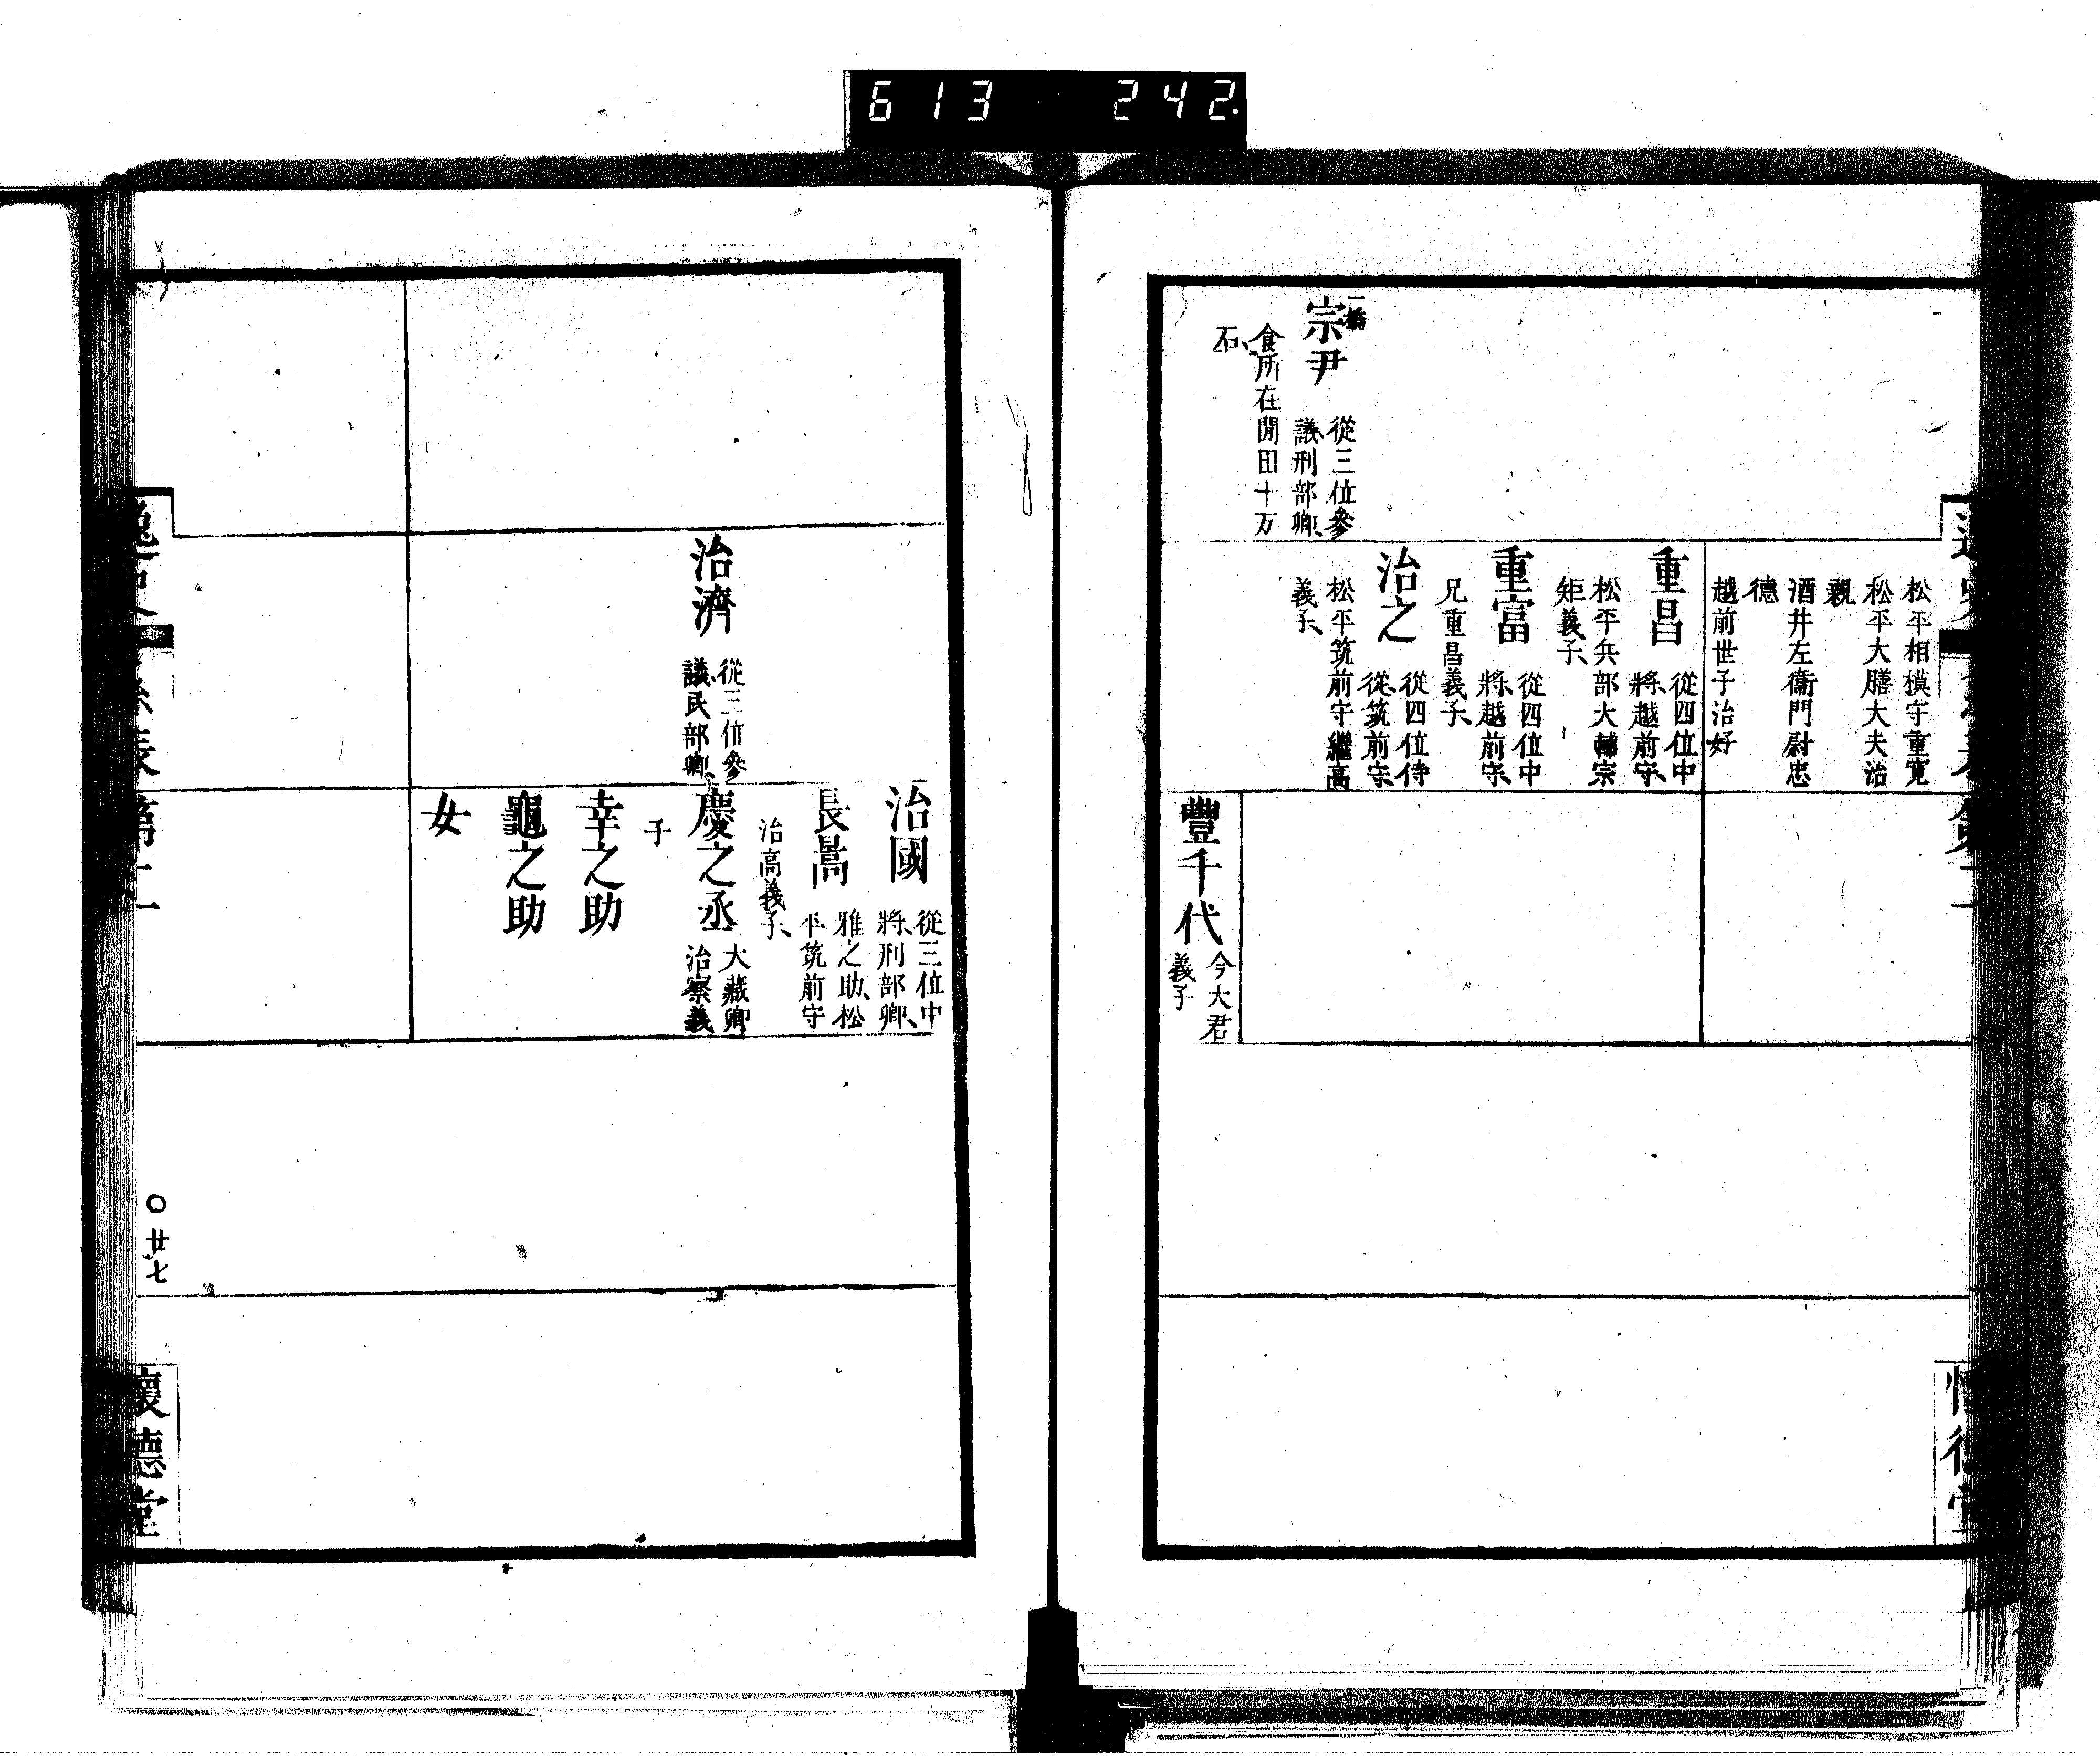 613 242.
松平相模守重寛
松平大膳大夫治
親
酒井左衞門尉忠
德
越前世子治好
一橋
宗尹
從三位參
議、刑部卿、
食所在閒田十万
石、
重昌
從四位中
將、越前守、
松平兵部大輔宗
矩義子、
重富
從四位中
將、越前守、
兄重昌義子、
治之
從四位侍
從、筑前守、
松平筑前守繼高
義子、
豐千代
今大君
義子
治濟
從三位參
議、民部卿、
治國
從三位中
將、刑部卿、
長暠
雅之助、松
平筑前守
治高義子、
慶之丞
大藏卿
治察義
子
幸之助
龜之助
女
〇廿七
懷德堂